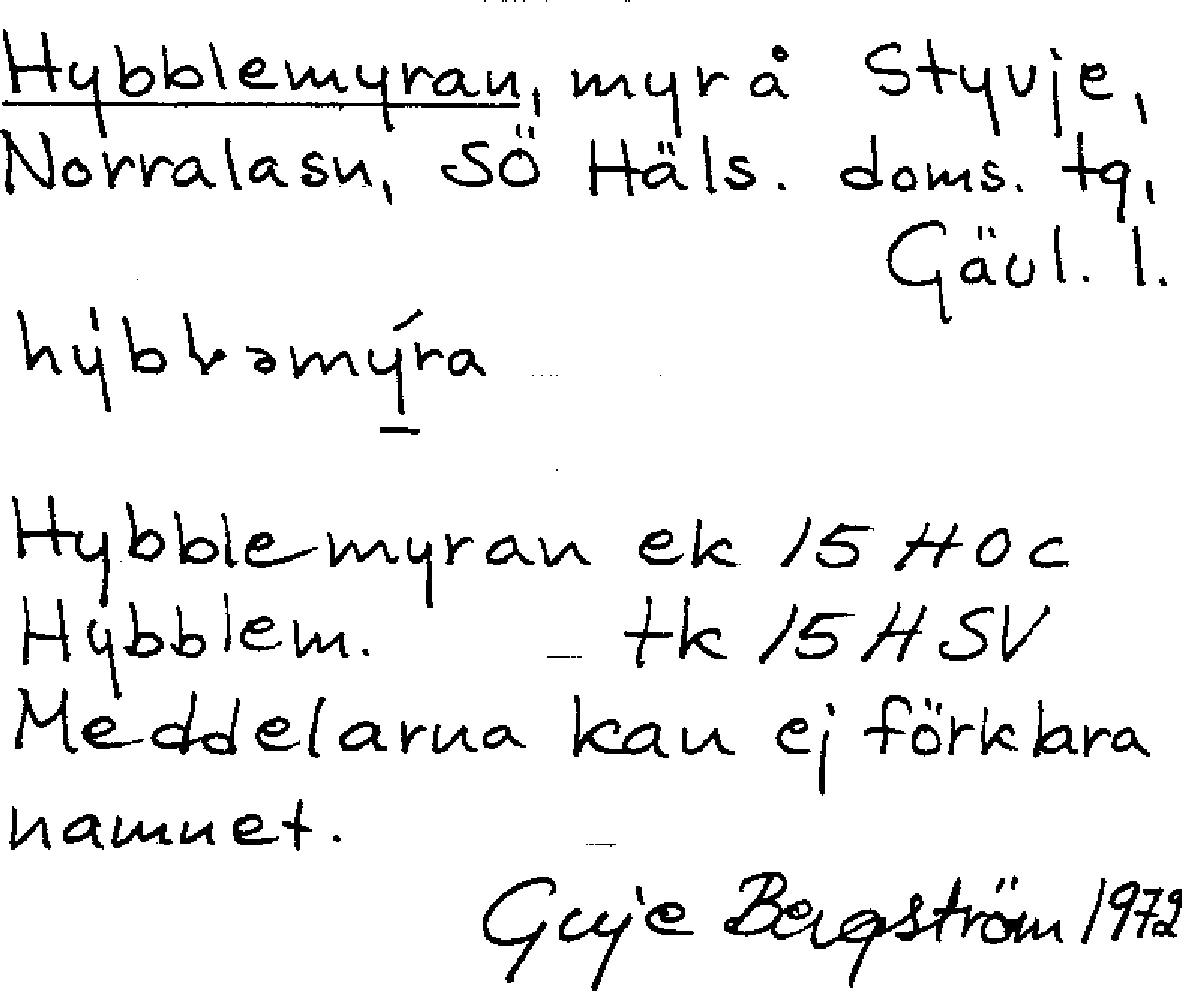 Hybblemyran, myr å Styvje,
Norralasn, SÖ Häls. doms. tg,
Gävl. l.
Hybblemyran ek 15 H 0 c
Hybblem. tk 15 H SV
Meddelarna kan ej förklara
namnet.
Bergström 1972